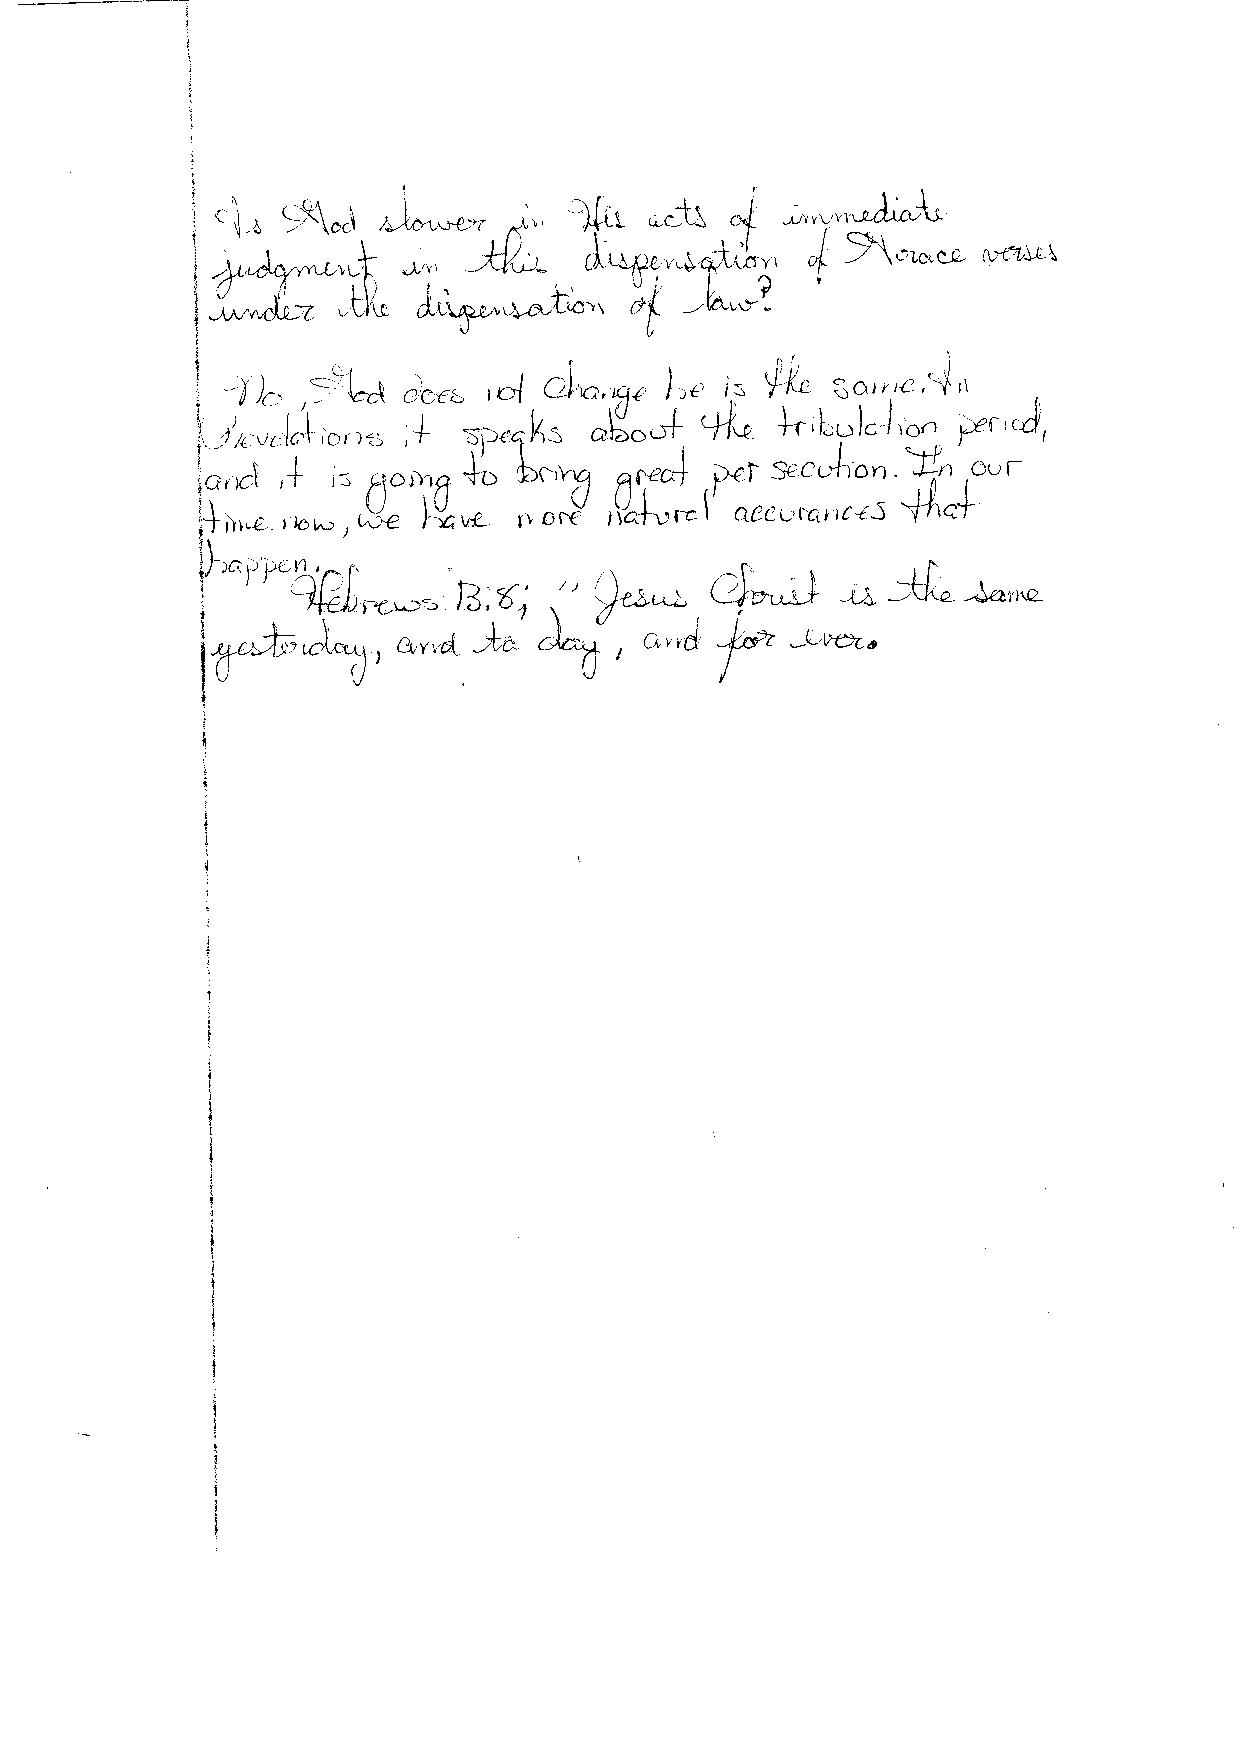 Is God slower in His acts of immediate
judgment in this dispensation of Grace verses
under the dispensation of law?
No, God does not change he is the same. In
Revelations it speaks about the tribulation period,
and it is going to bring great persecution. In our
time now, we have more natural accurances that
happen.
Hebrews 13:8; "Jesus Christ is the same
yesterday, and to day, and for ever.